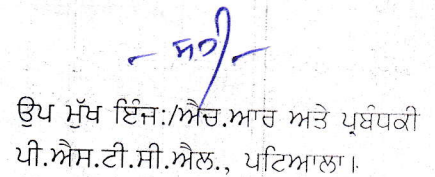 - ਸਹੀ -
ਉਪ ਮੁੱਖ ਇੰਜ:/ਐਚ.ਆਰ ਅਤੇ ਪ੍ਰਬੰਧਕੀ
ਪੀ.ਐਸ.ਟੀ.ਸੀ.ਐਲ., ਪਟਿਆਲਾ।